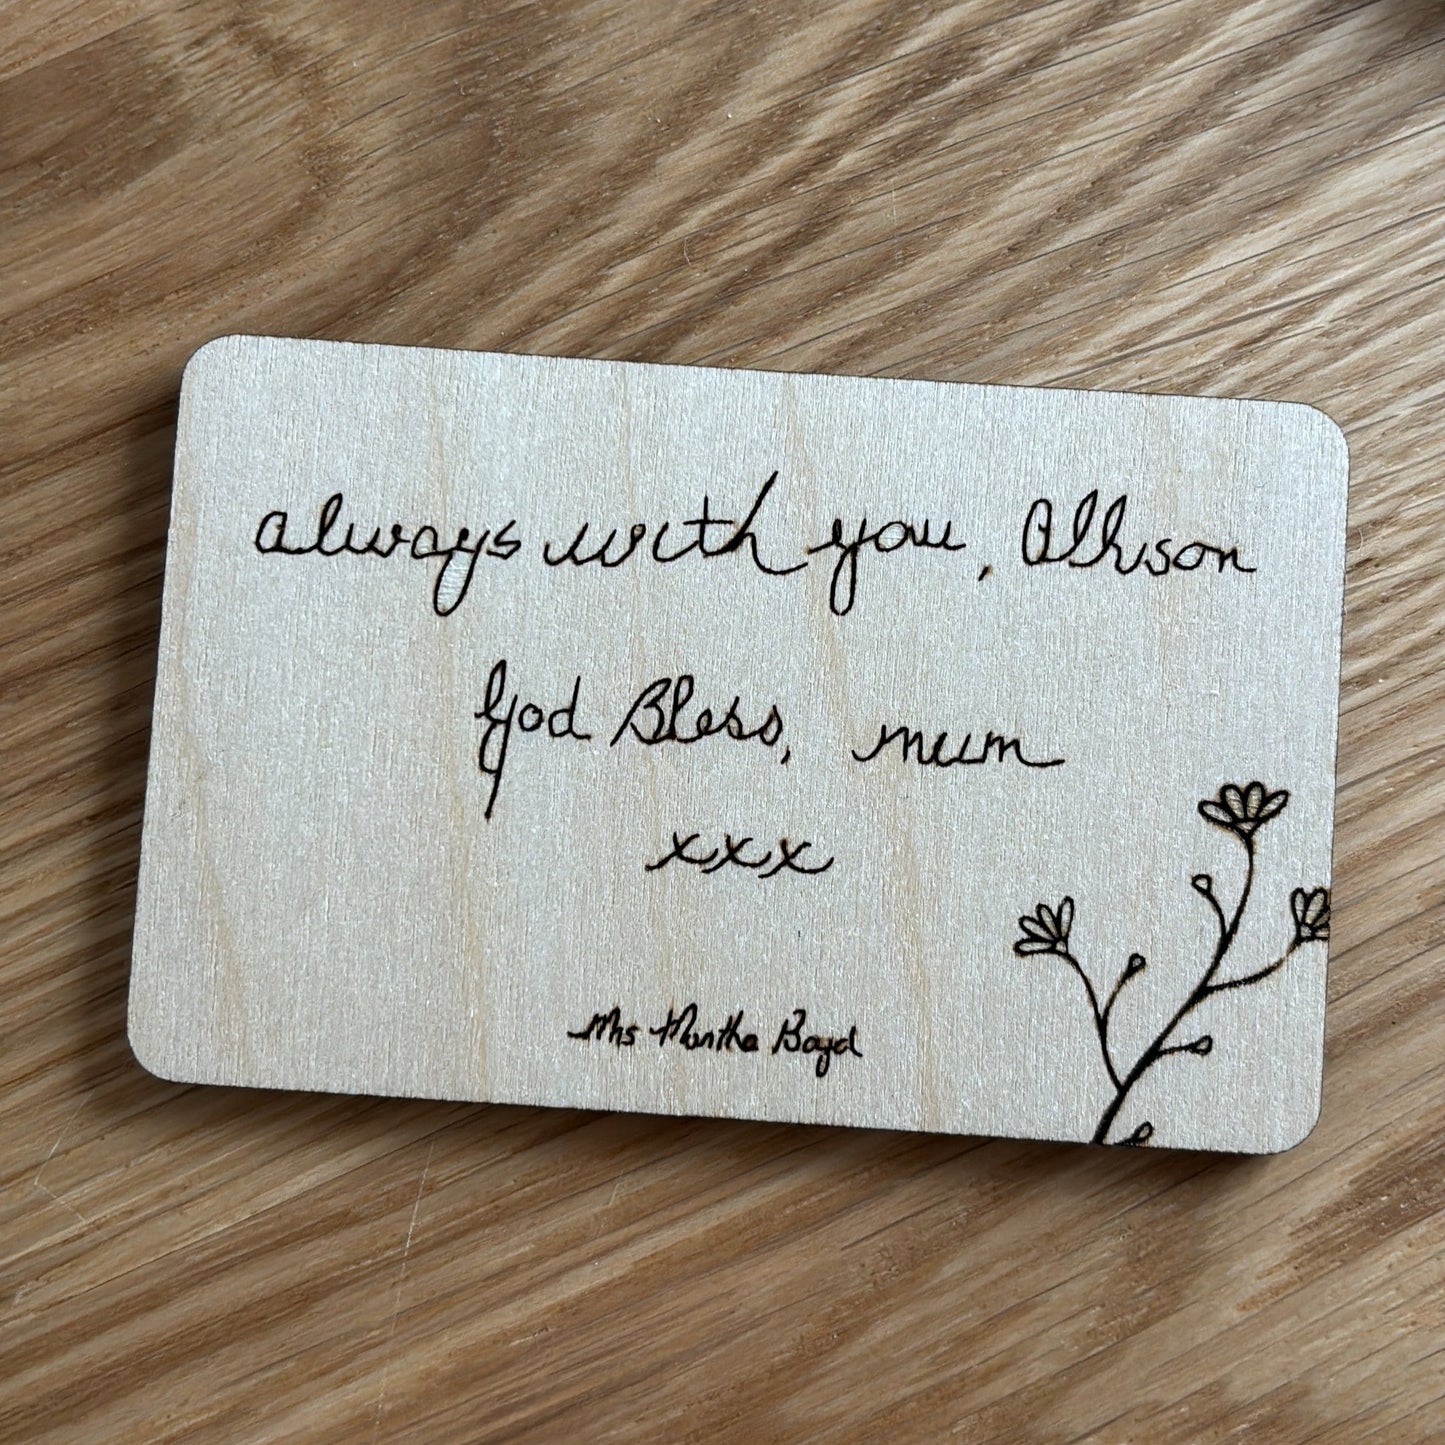 always with you, Allison
God Bless, mum
xxx
Mrs Martha Boyd